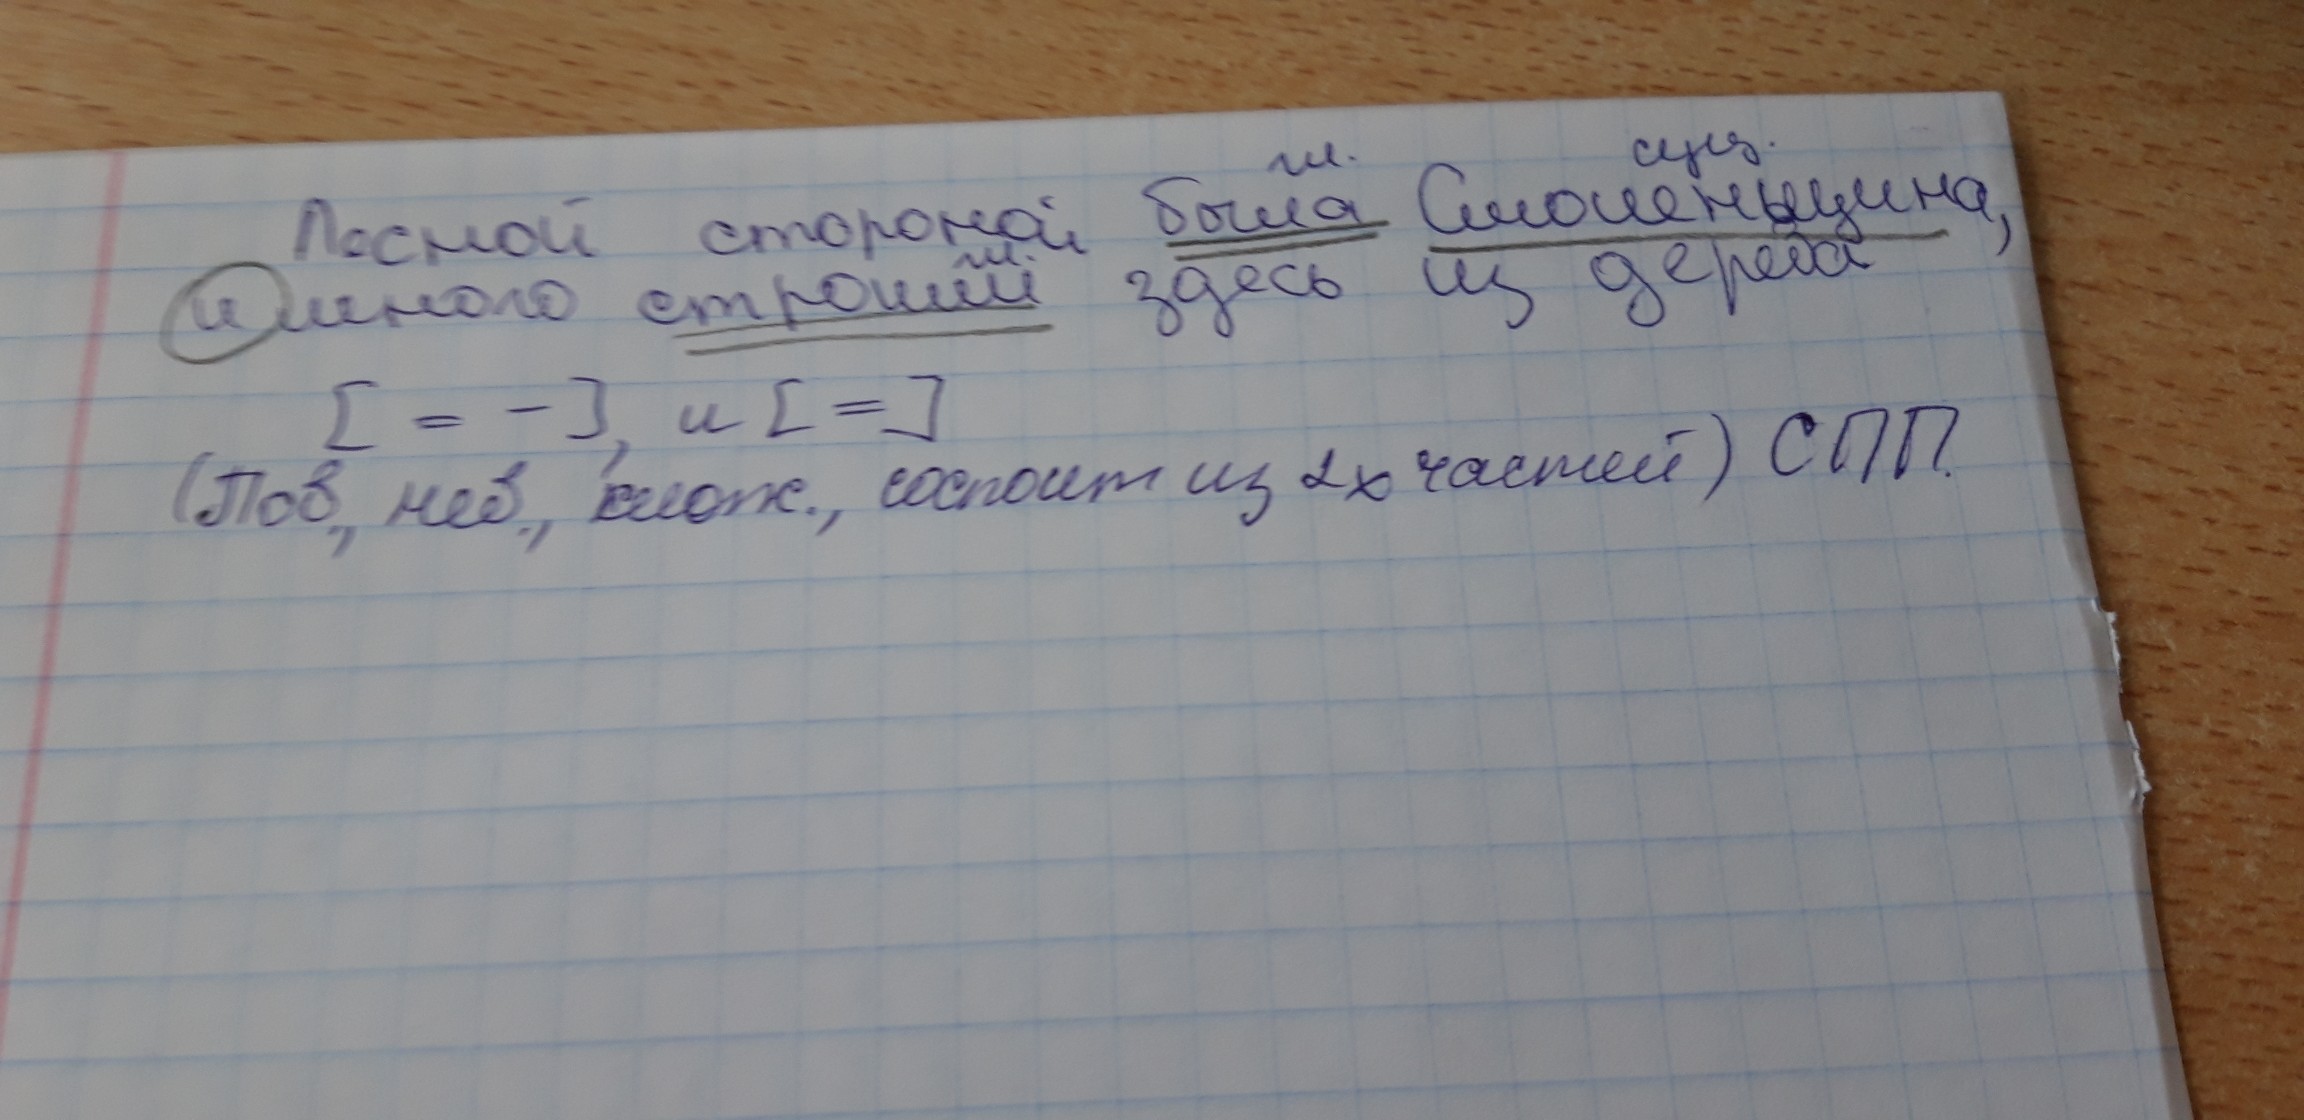 гл. сущ.
Лесной стороной была Смоленьщина,
гл.
и много строили здесь из дерева
[ = - ], и [ = ]
(Пов., нев., слож., состоит из 2х частей) СПП.